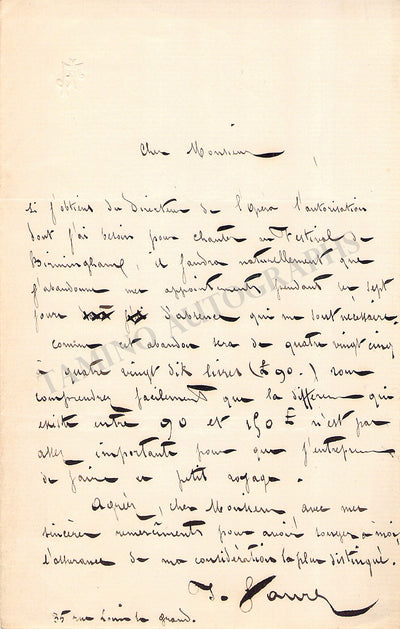 Cher Monsieur
Si j'obtiens du Directeur de l'Opera l'autorisation
dont j'ai besoin pour chanter au Festival de
Birmingham, il faudra naturellement que
j'abandonne mes appointements pendant les sept
jours d'absence qui me sont nécessaires.
comme cet abandon sera de quatre vingt cinq
à quatre vingt dix livres (£90.) vous
comprendrez facilement que la différence qui
existe entre 90 et 150 £ n'est pas
assez importante pour que j'entreprenne
de faire ce petit voyage.
Agréez, cher Monsieur avec mes
sincères remerciments pour avoir songé à moi,
l'assurance de ma considération la plus distinguée.
J. Faure
35 rue Louis le grand.
TAMINO AUTOGRAPHS